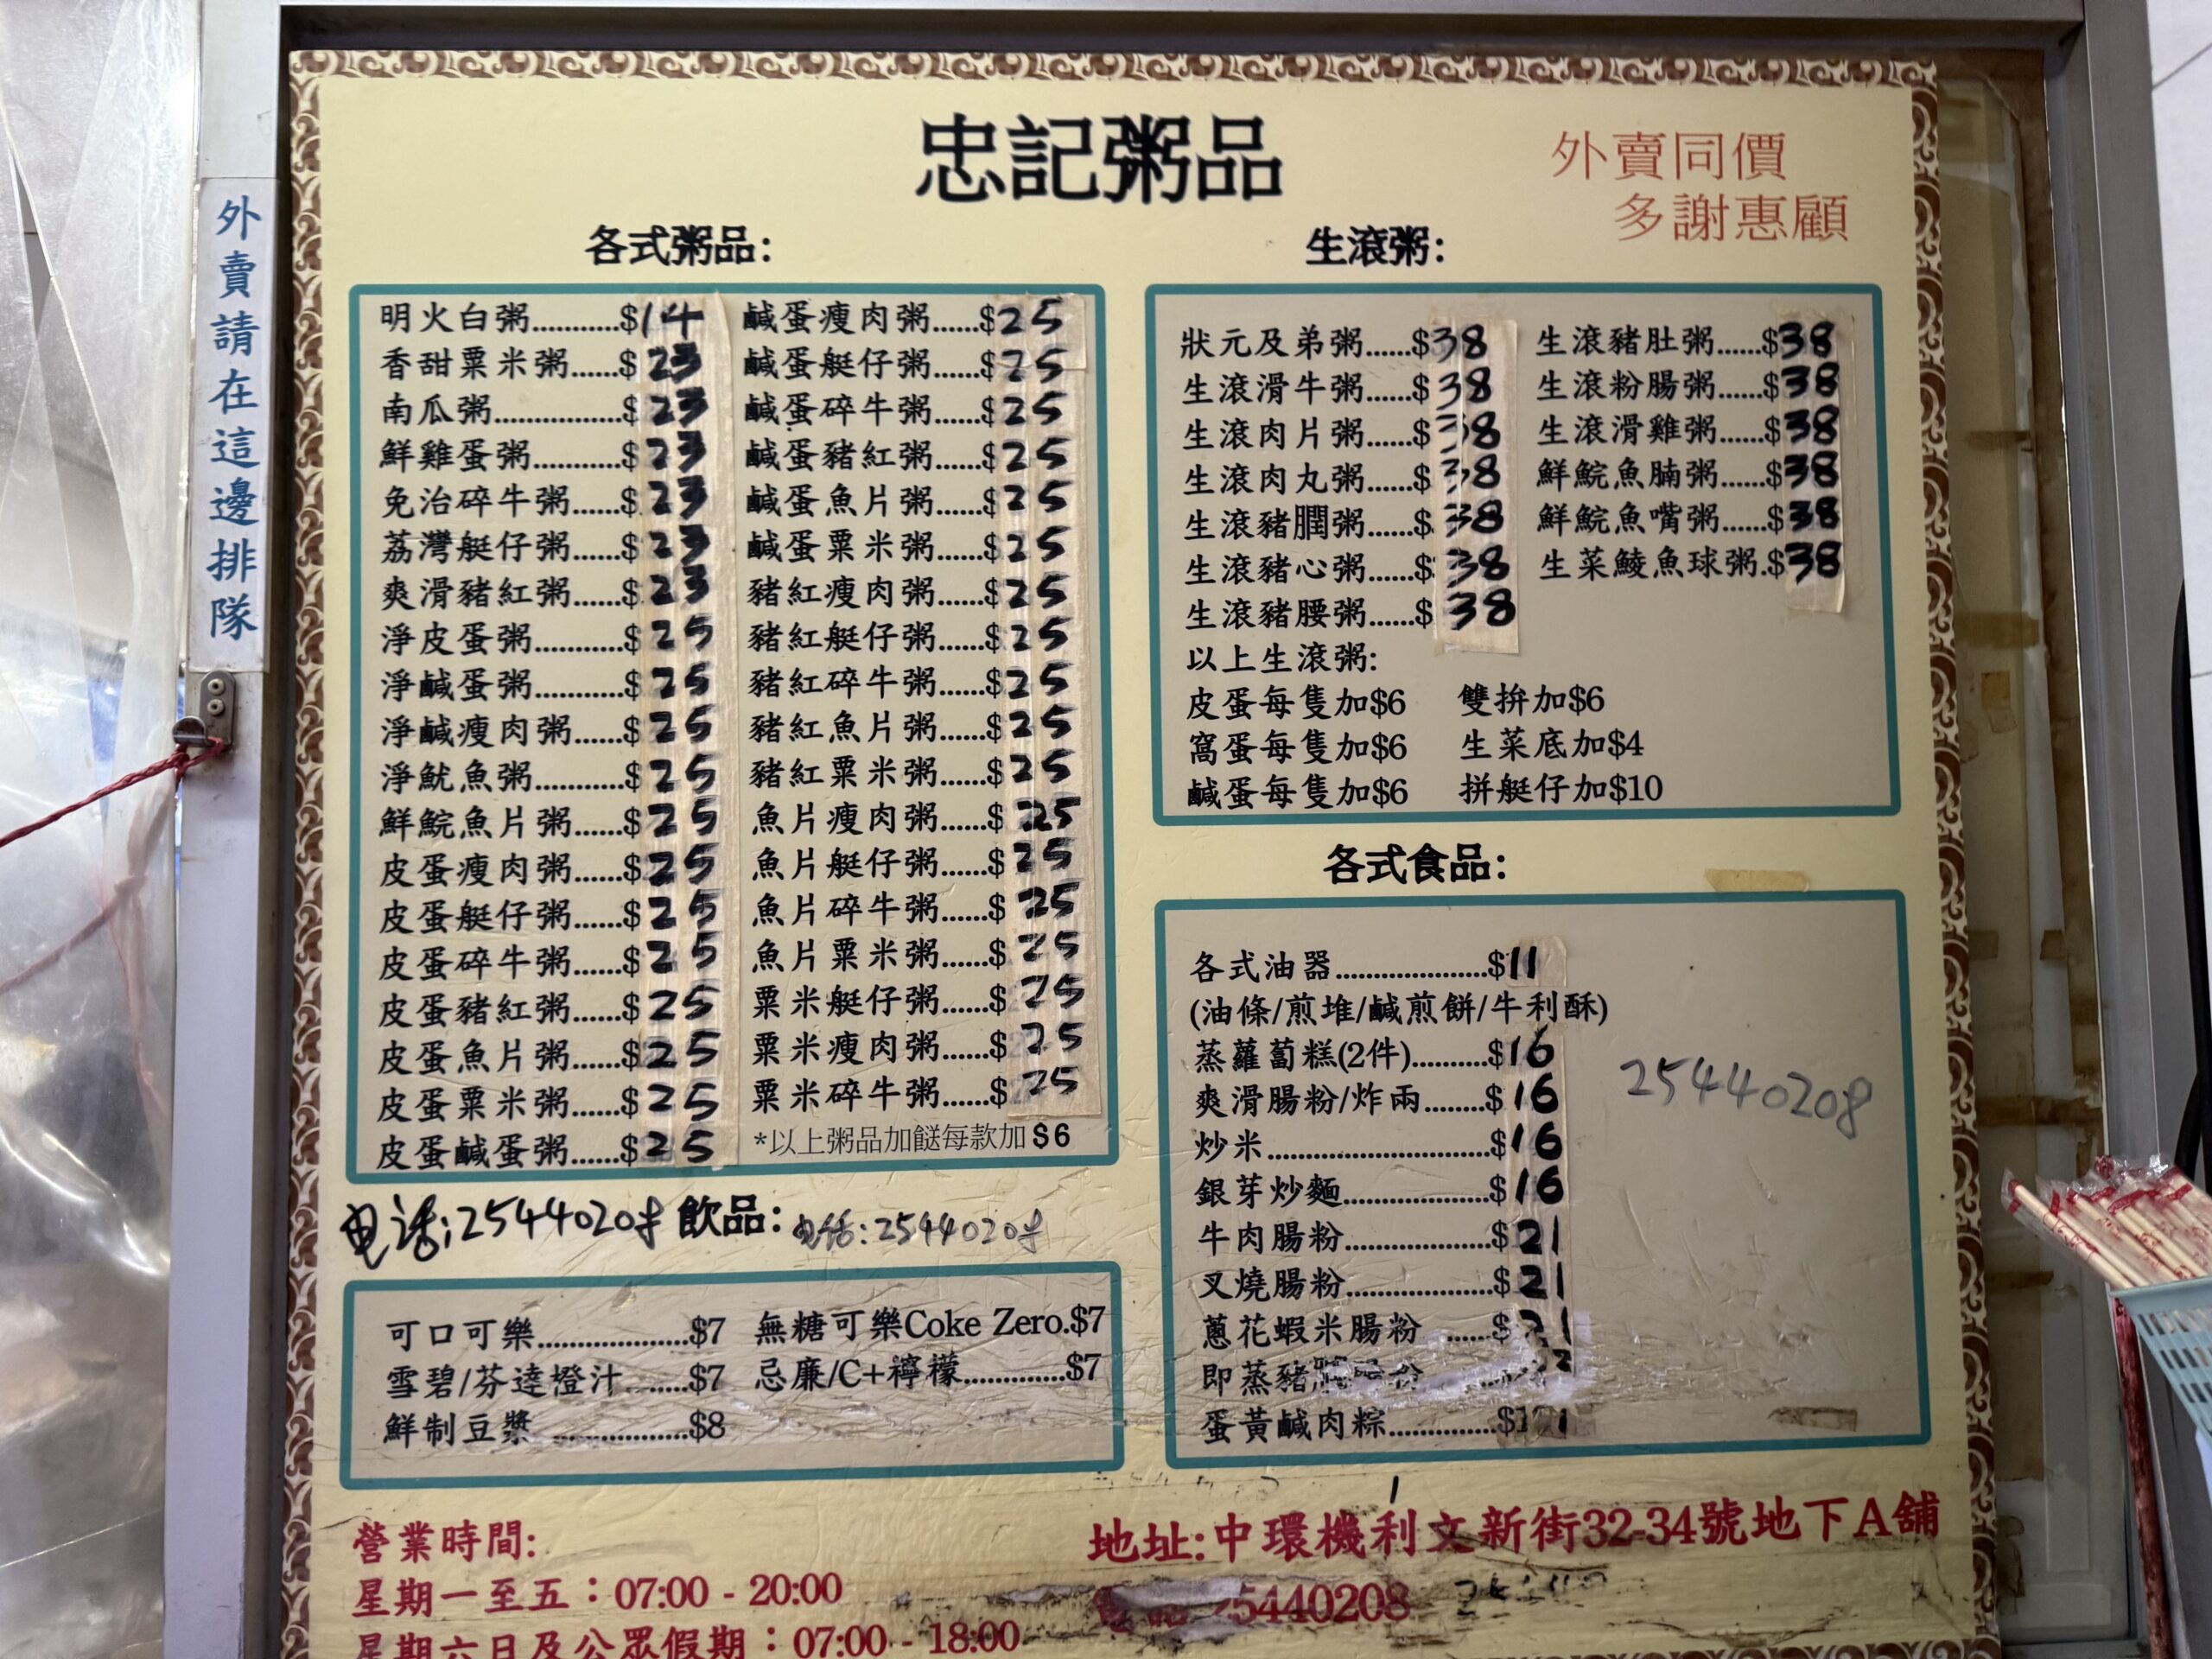 忠記粥品
外賣同價
多謝惠顧
外賣請在這邊排隊
各式粥品:
明火白粥............$14
香甜粟米粥......$23
南瓜粥................$23
鮮雞蛋粥............$23
免治碎牛粥......$23
荔灣艇仔粥......$23
爽滑豬紅粥......$23
淨皮蛋粥............$25
淨鹹蛋粥............$25
淨鹹瘦肉粥......$25
淨魷魚粥............$25
鮮鯇魚片粥......$25
皮蛋瘦肉粥......$25
皮蛋艇仔粥......$25
皮蛋碎牛粥......$25
皮蛋豬紅粥......$25
皮蛋魚片粥......$25
皮蛋粟米粥......$25
皮蛋鹹蛋粥......$25
鹹蛋瘦肉粥......$25
鹹蛋艇仔粥......$25
鹹蛋碎牛粥......$25
鹹蛋豬紅粥......$25
鹹蛋魚片粥......$25
鹹蛋粟米粥......$25
豬紅瘦肉粥......$25
豬紅艇仔粥......$25
豬紅碎牛粥......$25
豬紅魚片粥......$25
豬紅粟米粥......$25
魚片瘦肉粥......$25
魚片艇仔粥......$25
魚片碎牛粥......$25
魚片粟米粥......$25
粟米艇仔粥......$25
粟米瘦肉粥......$25
粟米碎牛粥......$25
*以上粥品加餸每款加$6
生滾粥:
狀元及弟粥......$38
生滾滑牛粥......$38
生滾肉片粥......$38
生滾肉丸粥......$38
生滾豬膶粥......$38
生滾豬心粥......$38
生滾豬腰粥......$38
生滾豬肚粥......$38
生滾粉腸粥......$38
生滾滑雞粥......$38
鮮鯇魚腩粥......$38
鮮鯇魚嘴粥......$38
生菜鯪魚球粥.$38
以上生滾粥:
皮蛋每隻加$6 雙拚加$6
窩蛋每隻加$6 生菜底加$4
鹹蛋每隻加$6 拼艇仔加$10
各式食品:
各式油器....................$11
(油條/煎堆/鹹煎餅/牛利酥)
蒸蘿蔔糕(2件)..........$16
爽滑腸粉/炸兩........$16
炒米.............................$16
銀芽炒麵...................$16
牛肉腸粉...................$21
叉燒腸粉...................$21
蔥花蝦米腸粉 ......$21
即蒸豬
蛋黃鹹肉粽..............
25440208
电话:25440208
飲品:
电话:25440208
可口可樂....................$7
雪碧/芬達橙汁.........$7
鮮制豆漿 ..................$8
無糖可樂Coke Zero.$7
忌廉/C+檸檬.............$7
營業時間:
星期一至五：07:00 - 20:00
星期六日及公眾假期：07:00 - 18:00
地址:中環機利文新街32-34號地下A舖
5440208